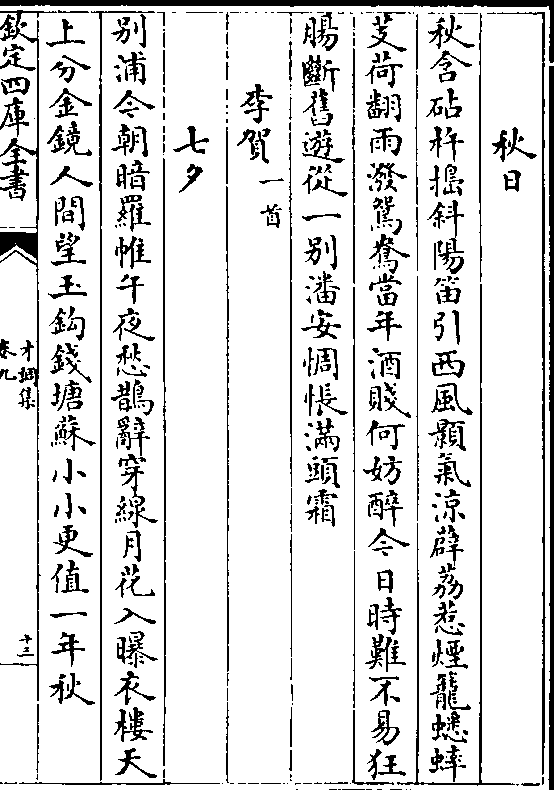 秋日
秋含砧杵搗斜陽笛引西風顥氣涼薜荔惹煙籠蟋蟀
芰荷翻雨潑鴛鴦當年酒賤何妨醉今日時難不易狂
腸斷舊遊從一別潘安惆悵滿頭霜
李賀一首
七夕
別浦今朝暗羅帷午夜愁鵲辭穿線月花入曝衣樓天
上分金鏡人間望玉鉤錢塘蘇小小更值一年秋
欽定四庫全書
才調集
卷九
十三